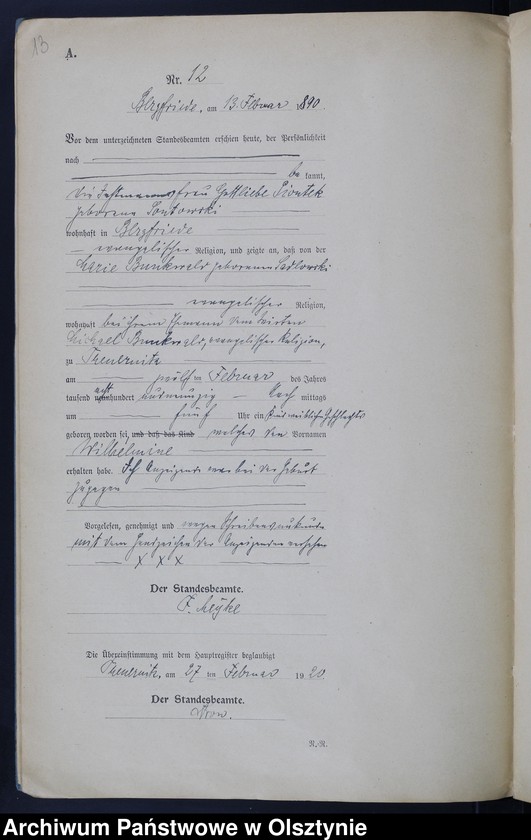 13
A.
Nr. 12
Bergfriede, am 13. Februar 1890.
Vor dem unterzeichneten Standesbeamten erschien heute, der Persönlichkeit
nach
be kannt,
die frau Gottliebe Piontek
geborene
wohnhaft in Bergfriede
evangelischer Religion, und zeigte an, daß von der
Marie Bunkwald geborenen Sadlowski
evangelischer Religion,
wohnhaft bei ihrem Ehemann dem Wirten
Michael Bunkwald, evangelischer Religion,
zu Theuernitz
am zwölften Februar des Jahres
tausend acht hundert und neunzig Nach mittags
um fünf Uhr ein Kind weiblichen Geschlechts
geboren worden sei, und daß das Kind welches den Vornamen
Wilhelmine
erhalten habe. Die Anzeigende war bei der Geburt
zugegen
Vorgelesen, genehmigt und wegen Schreibensunkunde
mit dem Handzeichen der Anzeigenden versehen
x x x
Der Standesbeamte.
F.
Die Übereinstimmung mit dem Hauptregister beglaubigt
Theuernitz, am 27 ten Februar 1920.
Der Standesbeamte.
R./R.
Archiwum Państwowe w Olsztynie